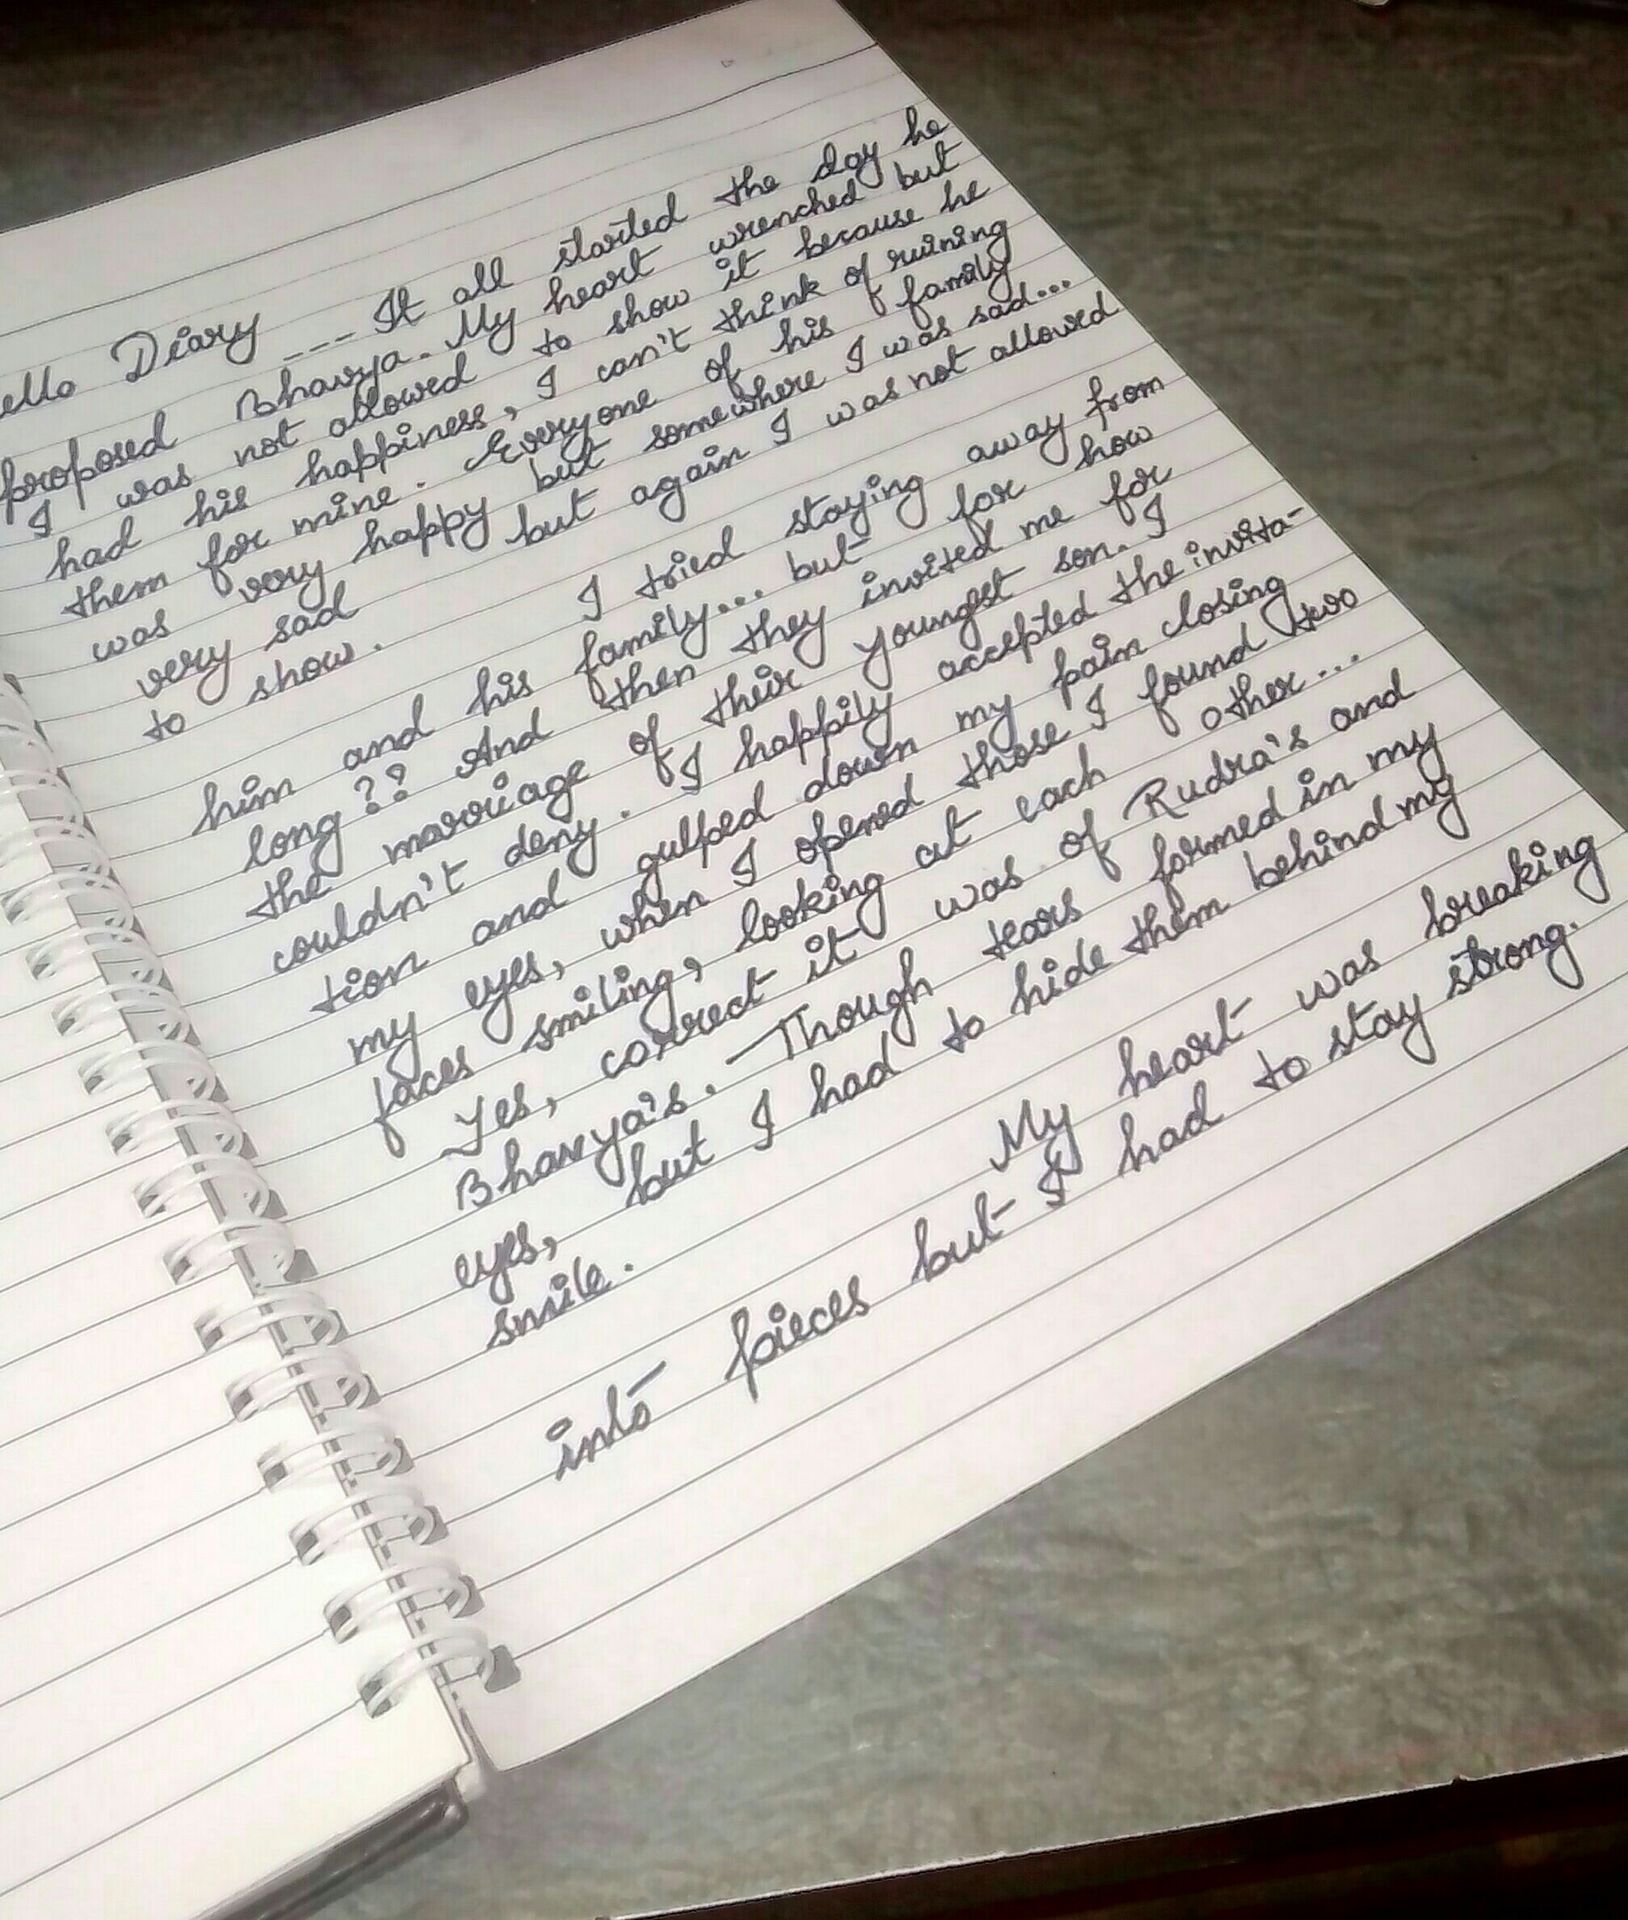 ello Diary --- It all started the day he
proposed Bhavya. My heart wrenched but
I was not allowed to show it because he
had his happiness, I can't think of ruining
them for mine. Everyone of his family
was very happy but somewhere I was sad...
very sad but again I was not allowed
to show.
I tried staying away from
him and his family... but for how
long?? And then they invited me for
the marriage of their youngest son. I
couldn't deny. I happily accepted the invita-
tion and gulped down my pain closing
my eyes, when I opened those I found two
faces smiling, looking at each other...
Yes, correct it was of Rudra's and
Bhavya's. Though tears formed in my
eyes, but I had to hide them behind my
smile.
My heart was breaking
into pieces but I had to stay strong.